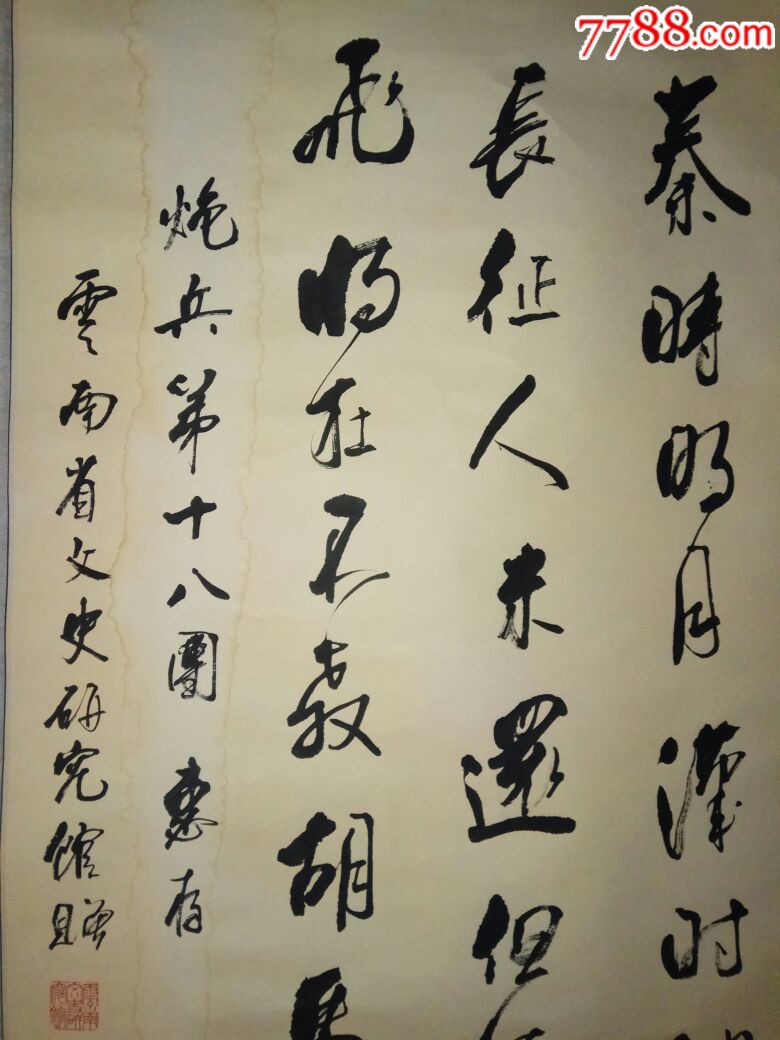 7788.com
秦時明月漢时
長征人未還但
飛将在不教胡馬
炮兵第十八團 惠存
雲南省文史研究館贈